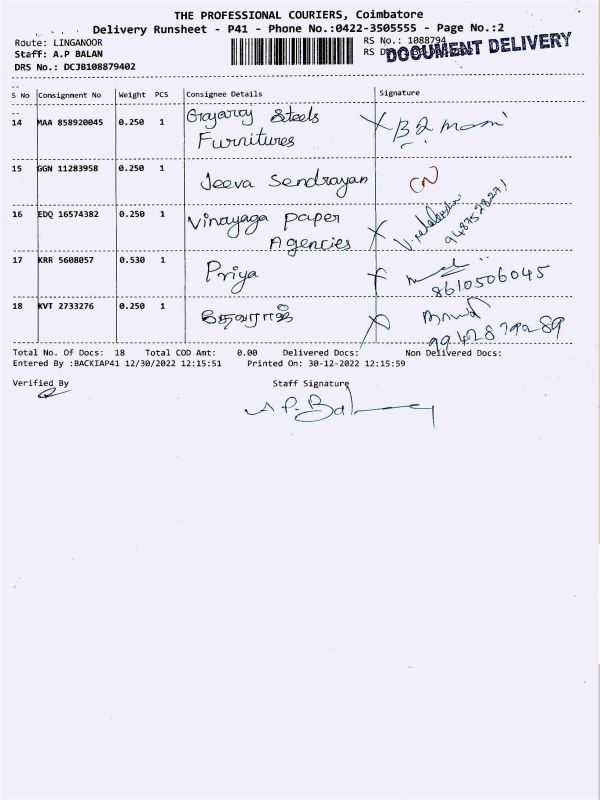 THE PROFESSIONAL COURIERS, Coimbatore
Delivery Runsheet - P41 - Phone No.:0422-3505555 - Page No.:2
Route: LINGANOOR
RS No.: 1088794
Staff: A.P BALAN
DOCUMENT DELIVERY
DRS No.: DCJB108879402
S No Consignment No Weight PCS Consignee Details Signature
14 MAA 858920045 0.250 1 Gajaroy Steels
Furnitures
15 GGN 11283958 0.250 1 Jeeva Sendrayan CN
16 EDQ 16574382 0.250 1 Vinayaga paper
Agencies
9487528271
17 KRR 5608057 0.530 1 Priya
8610506045
18 KVT 2733276 0.250 1 தேவராஜ்
9942879289
Total No. Of Docs: 18 Total COD Amt: 0.00 Delivered Docs: Non Delivered Docs:
Entered By :BACKIAP41 12/30/2022 12:15:51 Printed On: 30-12-2022 12:15:59
Verified By Staff Signature
A.P. Bal